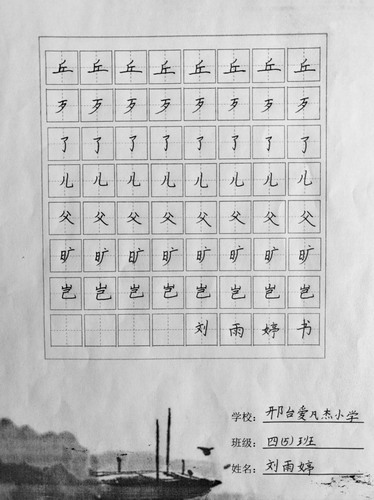 丘丘丘丘丘丘丘丘
歹歹歹歹歹歹歹歹
了了了了了了了了
儿儿儿儿儿儿儿儿
父父父父父父父父
旷旷旷旷旷旷旷旷
岂岂岂岂岂岂岂岂
刘雨婷书
学校：邢台爱凡杰小学
班级：四(5)班
姓名：刘雨婷